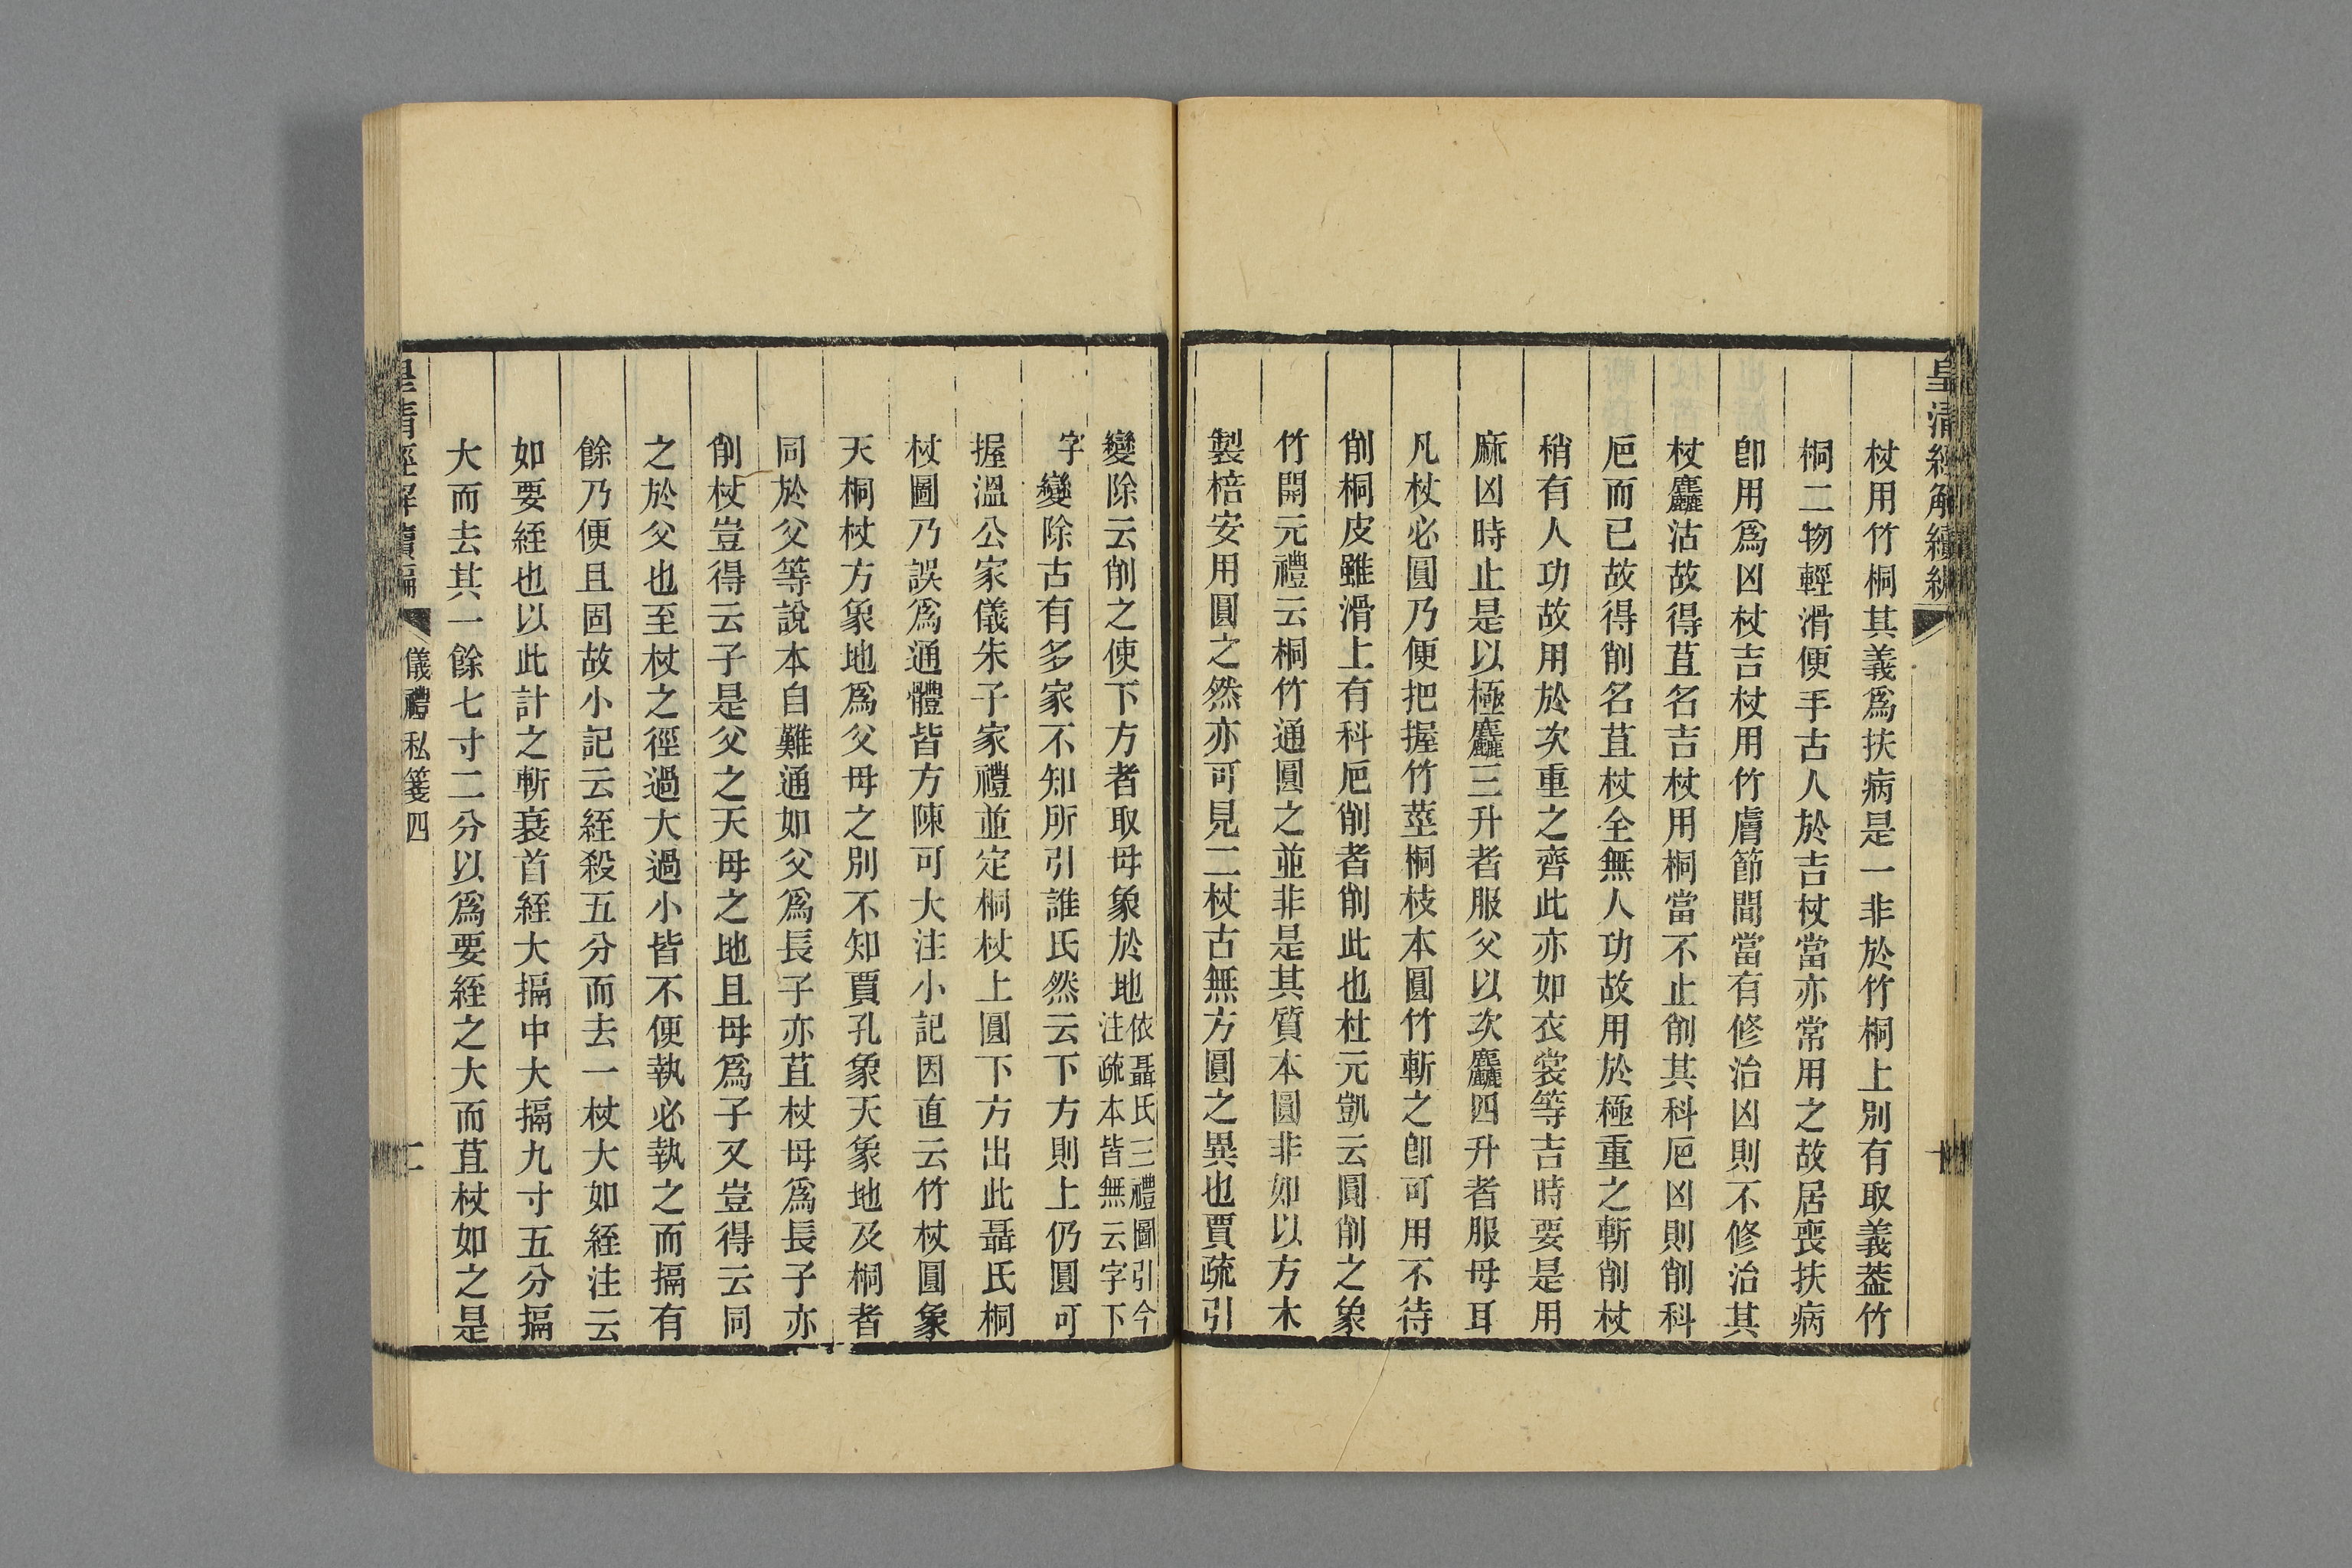 皇清經解續編
杖用竹桐其義爲扶病是一非於竹桐上別有取義葢竹
桐二物輕滑便手古人於吉杖當亦常用之故居喪扶病
卽用爲凶杖吉杖用竹膚節間當有修治凶則不修治其
杖麤沽故得苴名吉杖用桐當不止削其科厄凶則削科
厄而已故得削名苴杖全無人功故用於極重之斬削杖
稍有人功故用於次重之齊此亦如衣裳等吉時要是用
麻凶時止是以極麤三升者服父以次麤四升者服母耳
凡杖必圓乃便把握竹莖桐枝本圓竹斬之卽可用不待
削桐皮雖滑上有科厄削者削此也杜元凱云圓削之象
竹開元禮云桐竹通圓之並非是其質本圓非如以方木
製棓安用圓之然亦可見二杖古無方圓之異也賈疏引
變除云削之使下方者取母象於地依聶氏三禮圖引今
注疏本皆無云字下
字變除古有多家不知所引誰氏然云下方則上仍圓可
握溫公家儀朱子家禮並定桐杖上圓下方出此聶氏桐
杖圖乃誤爲通體皆方陳可大注小記因直云竹杖圓象
天桐杖方象地爲父母之別不知賈孔象天象地及桐者
同於父等說本自難通如父爲長子亦苴杖母爲長子亦
削杖豈得云子是父之天母之地且母爲子又豈得云同
之於父也至杖之徑過大過小皆不便執必執之而搹有
餘乃便且固故小記云絰殺五分而去一杖大如絰注云
如要絰也以此計之斬衰首絰大搹中大搹九寸五分搹
大而去其一餘七寸二分以爲要絰之大而苴杖如之是
皇清經解續編
儀禮私箋四